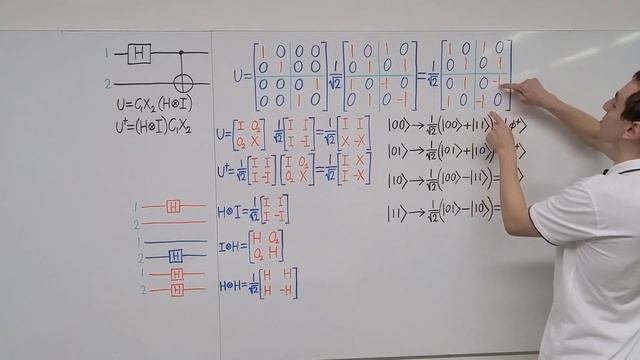 1 H
2
U=C₁X₂(H⊗I)
U†=(H⊗I)C₁X₂
U= [1 0 0 0; 0 1 0 0; 0 0 0 1; 0 0 1 0] 1/√2 [1 0 1 0; 0 1 0 1; 1 0 -1 0; 0 1 0 -1] = 1/√2 [1 0 1 0; 0 1 0 1; 0 1 0 -1; 1 0 -1 0]
U= [I O₂; O₂ X] 1/√2 [I I; I -I] = 1/√2 [I I; X -X]
U†= 1/√2 [I I; I -I] [I O₂; O₂ X] = 1/√2 [I X; I -X]
|00⟩→1/√2(|00⟩+|11⟩) ϕ⁺⟩
|01⟩→1/√2(|01⟩+|10⟩) ⁺⟩
|10⟩→1/√2(|00⟩-|11⟩)= ⟩
|11⟩→1/√2(|01⟩-|10⟩)=
1 H
2
H⊗I= 1/√2 [I I; I -I]
1
2 H
I⊗H= [H O₂; O₂ H]
1 H
2 H
H⊗H= 1/√2 [H H; H -H]